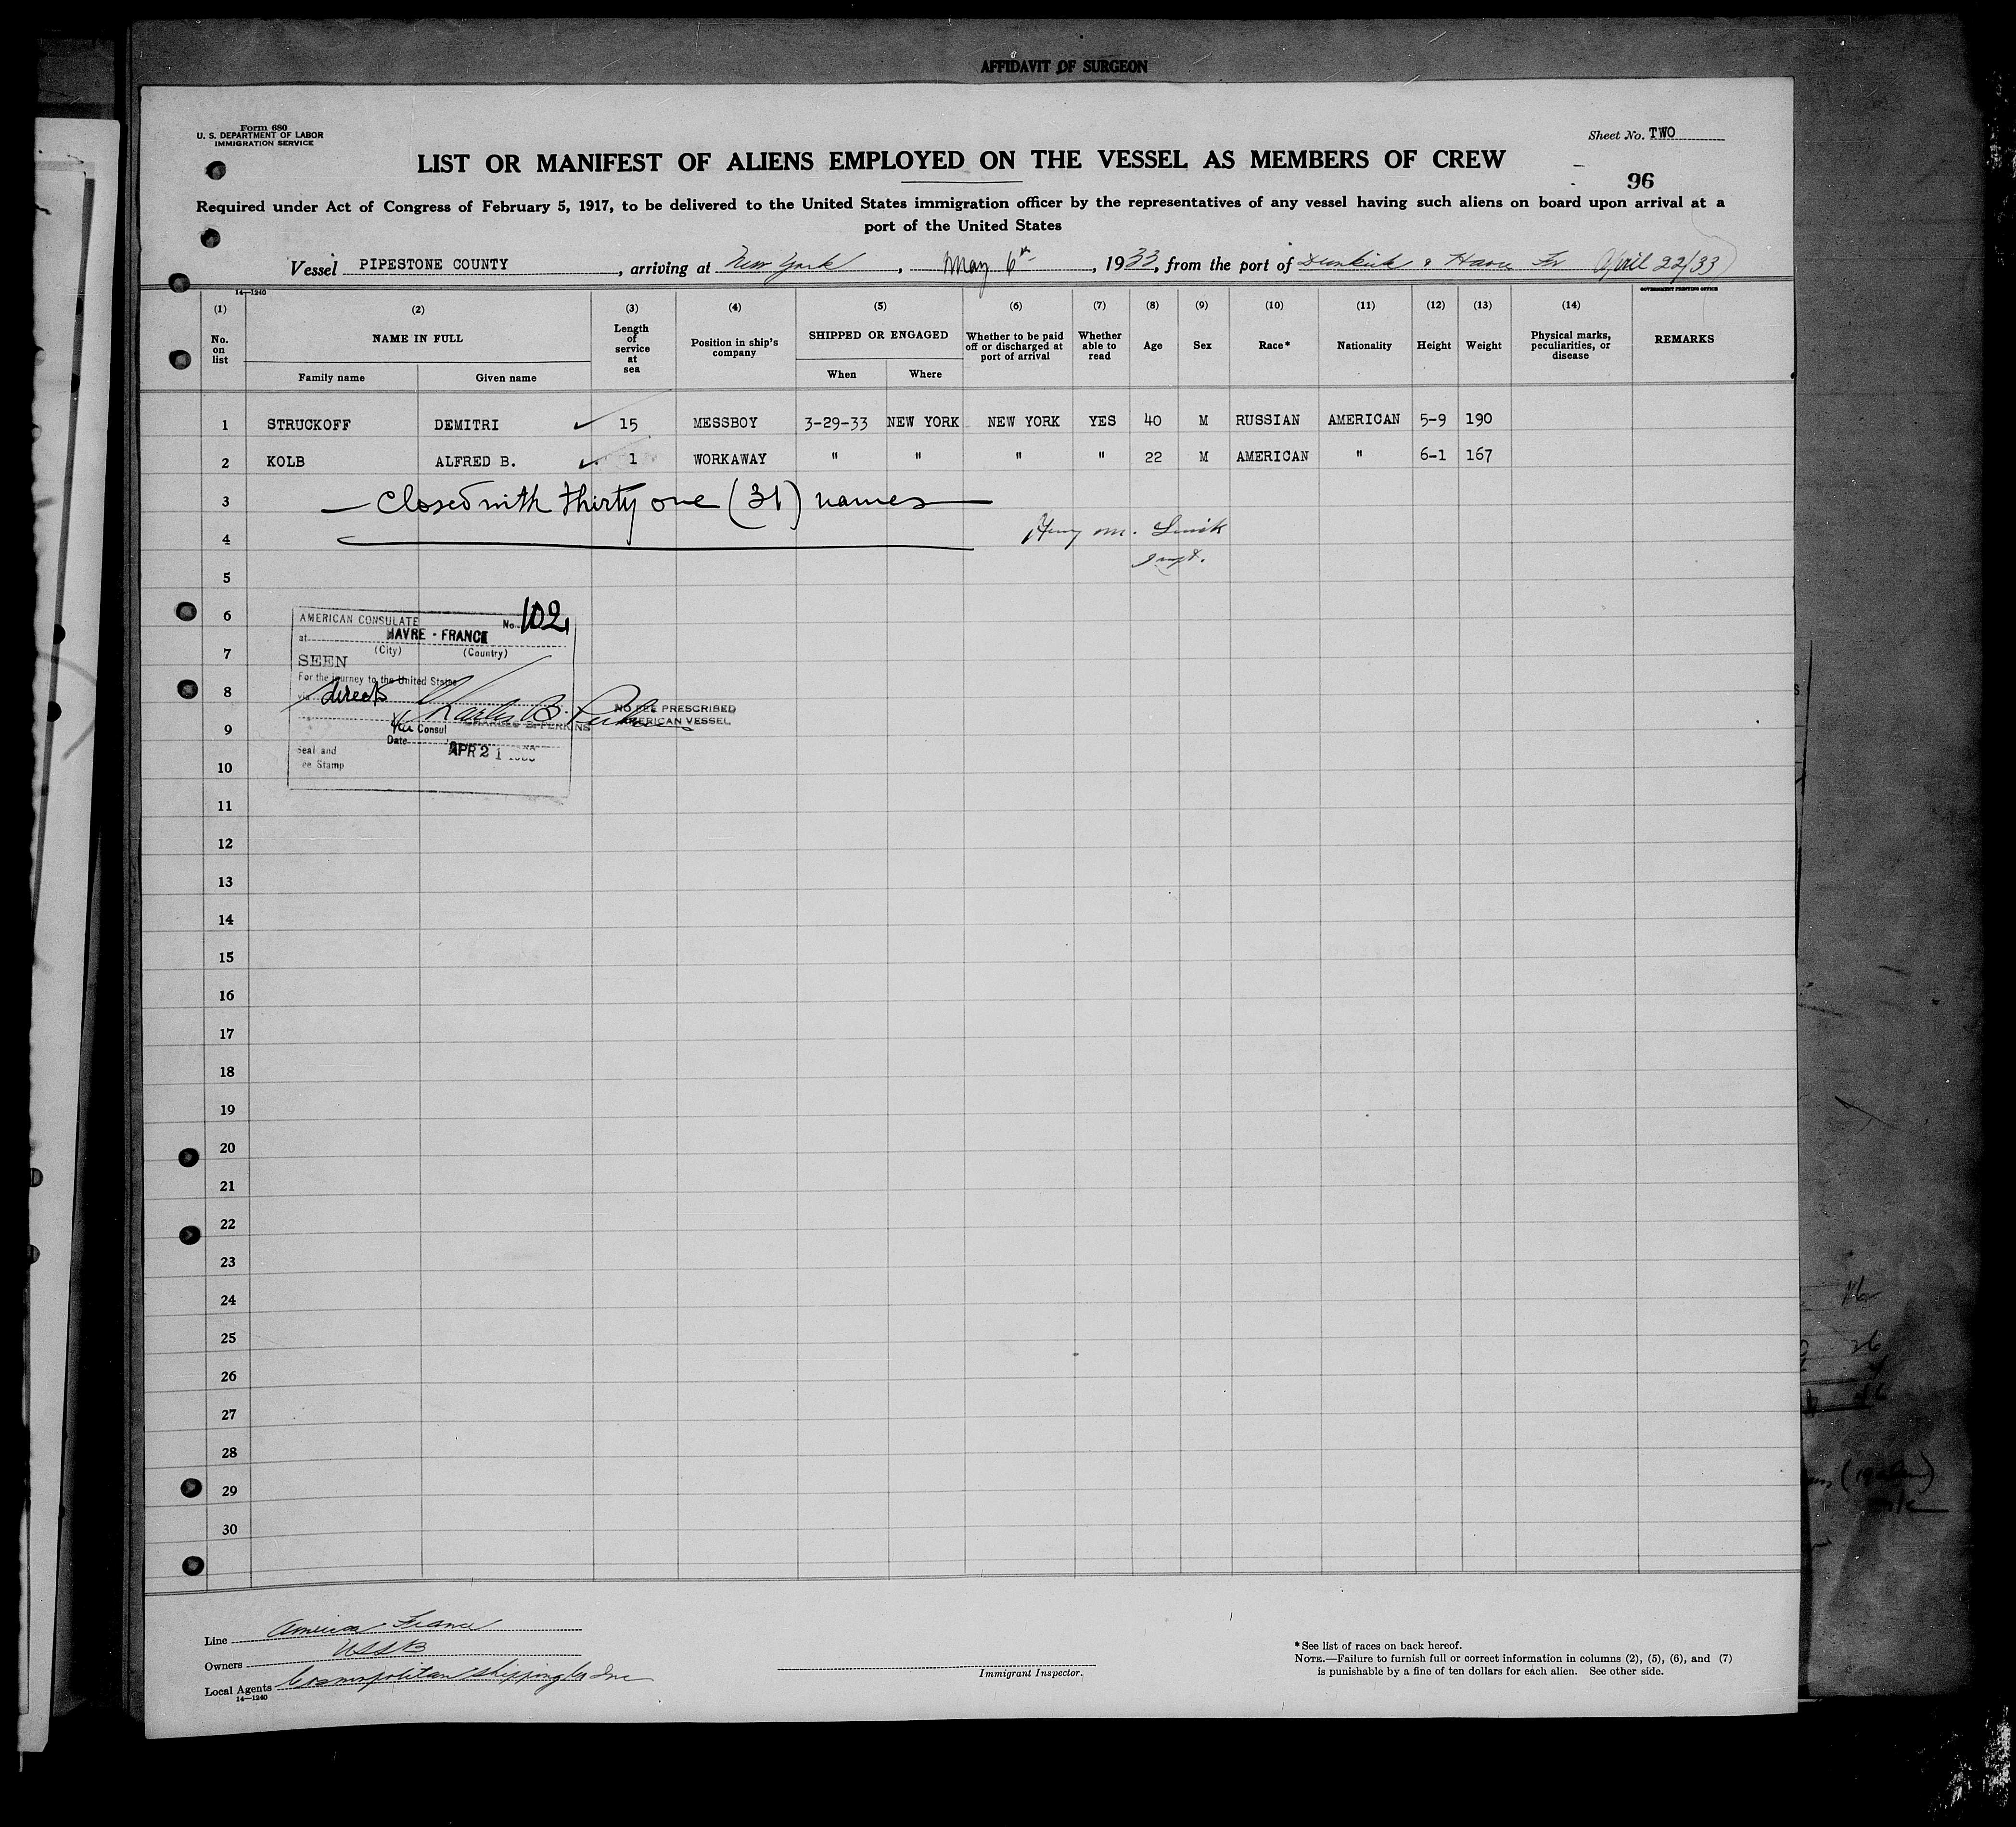 AFFIDAVIT OF SURGEON
Form 680
U. S. DEPARTMENT OF LABOR
IMMIGRATION SERVICE
Sheet No. TWO
LIST OR MANIFEST OF ALIENS EMPLOYED ON THE VESSEL AS MEMBERS OF CREW
96
Required under Act of Congress of February 5, 1917, to be delivered to the United States immigration officer by the representatives of any vessel having such aliens on board upon arrival at a
port of the United States
Vessel PIPESTONE COUNTY, arriving at New York, May 6th, 1933, from the port of Dunkirk & Havre Fr April 22/33
14—1240
GOVERNMENT PRINTING OFFICE
(1) (2) (3) (4) (5) (6) (7) (8) (9) (10) (11) (12) (13) (14)
No. on list
NAME IN FULL
Family name
Given name
Length of service at sea
Position in ship's company
SHIPPED OR ENGAGED
When
Where
Whether to be paid off or discharged at port of arrival
Whether able to read
Age
Sex
Race*
Nationality
Height
Weight
Physical marks, peculiarities, or disease
REMARKS
1 STRUCKOFF DEMITRI ✓ 15 MESSBOY 3-29-33 NEW YORK NEW YORK YES 40 M RUSSIAN AMERICAN 5-9 190
2 KOLB ALFRED B. ✓ 1 WORKAWAY " " " " 22 M AMERICAN " 6-1 167
3 — Closed with thirty one (31) names —
4 Henry M.
5
6
7
8
9
10
11
12
13
14
15
16
17
18
19
20
21
22
23
24
25
26
27
28
29
30
AMERICAN CONSULATE
No. 102
at HAVRE - FRANCE
(City) (Country)
SEEN
For the journey to the United States
via direct
Charles B. Perkins
NO FEE PRESCRIBED
AMERICAN VESSEL
CHARLES B. PERKINS
Consul
Date APR 21
Seal and
ee Stamp
Line America France
Owners USSB
Local Agents Cosmopolitan Shipping Co Inc
14—1240
Immigrant Inspector.
*See list of races on back hereof.
NOTE.—Failure to furnish full or correct information in columns (2), (5), (6), and (7)
is punishable by a fine of ten dollars for each alien. See other side.